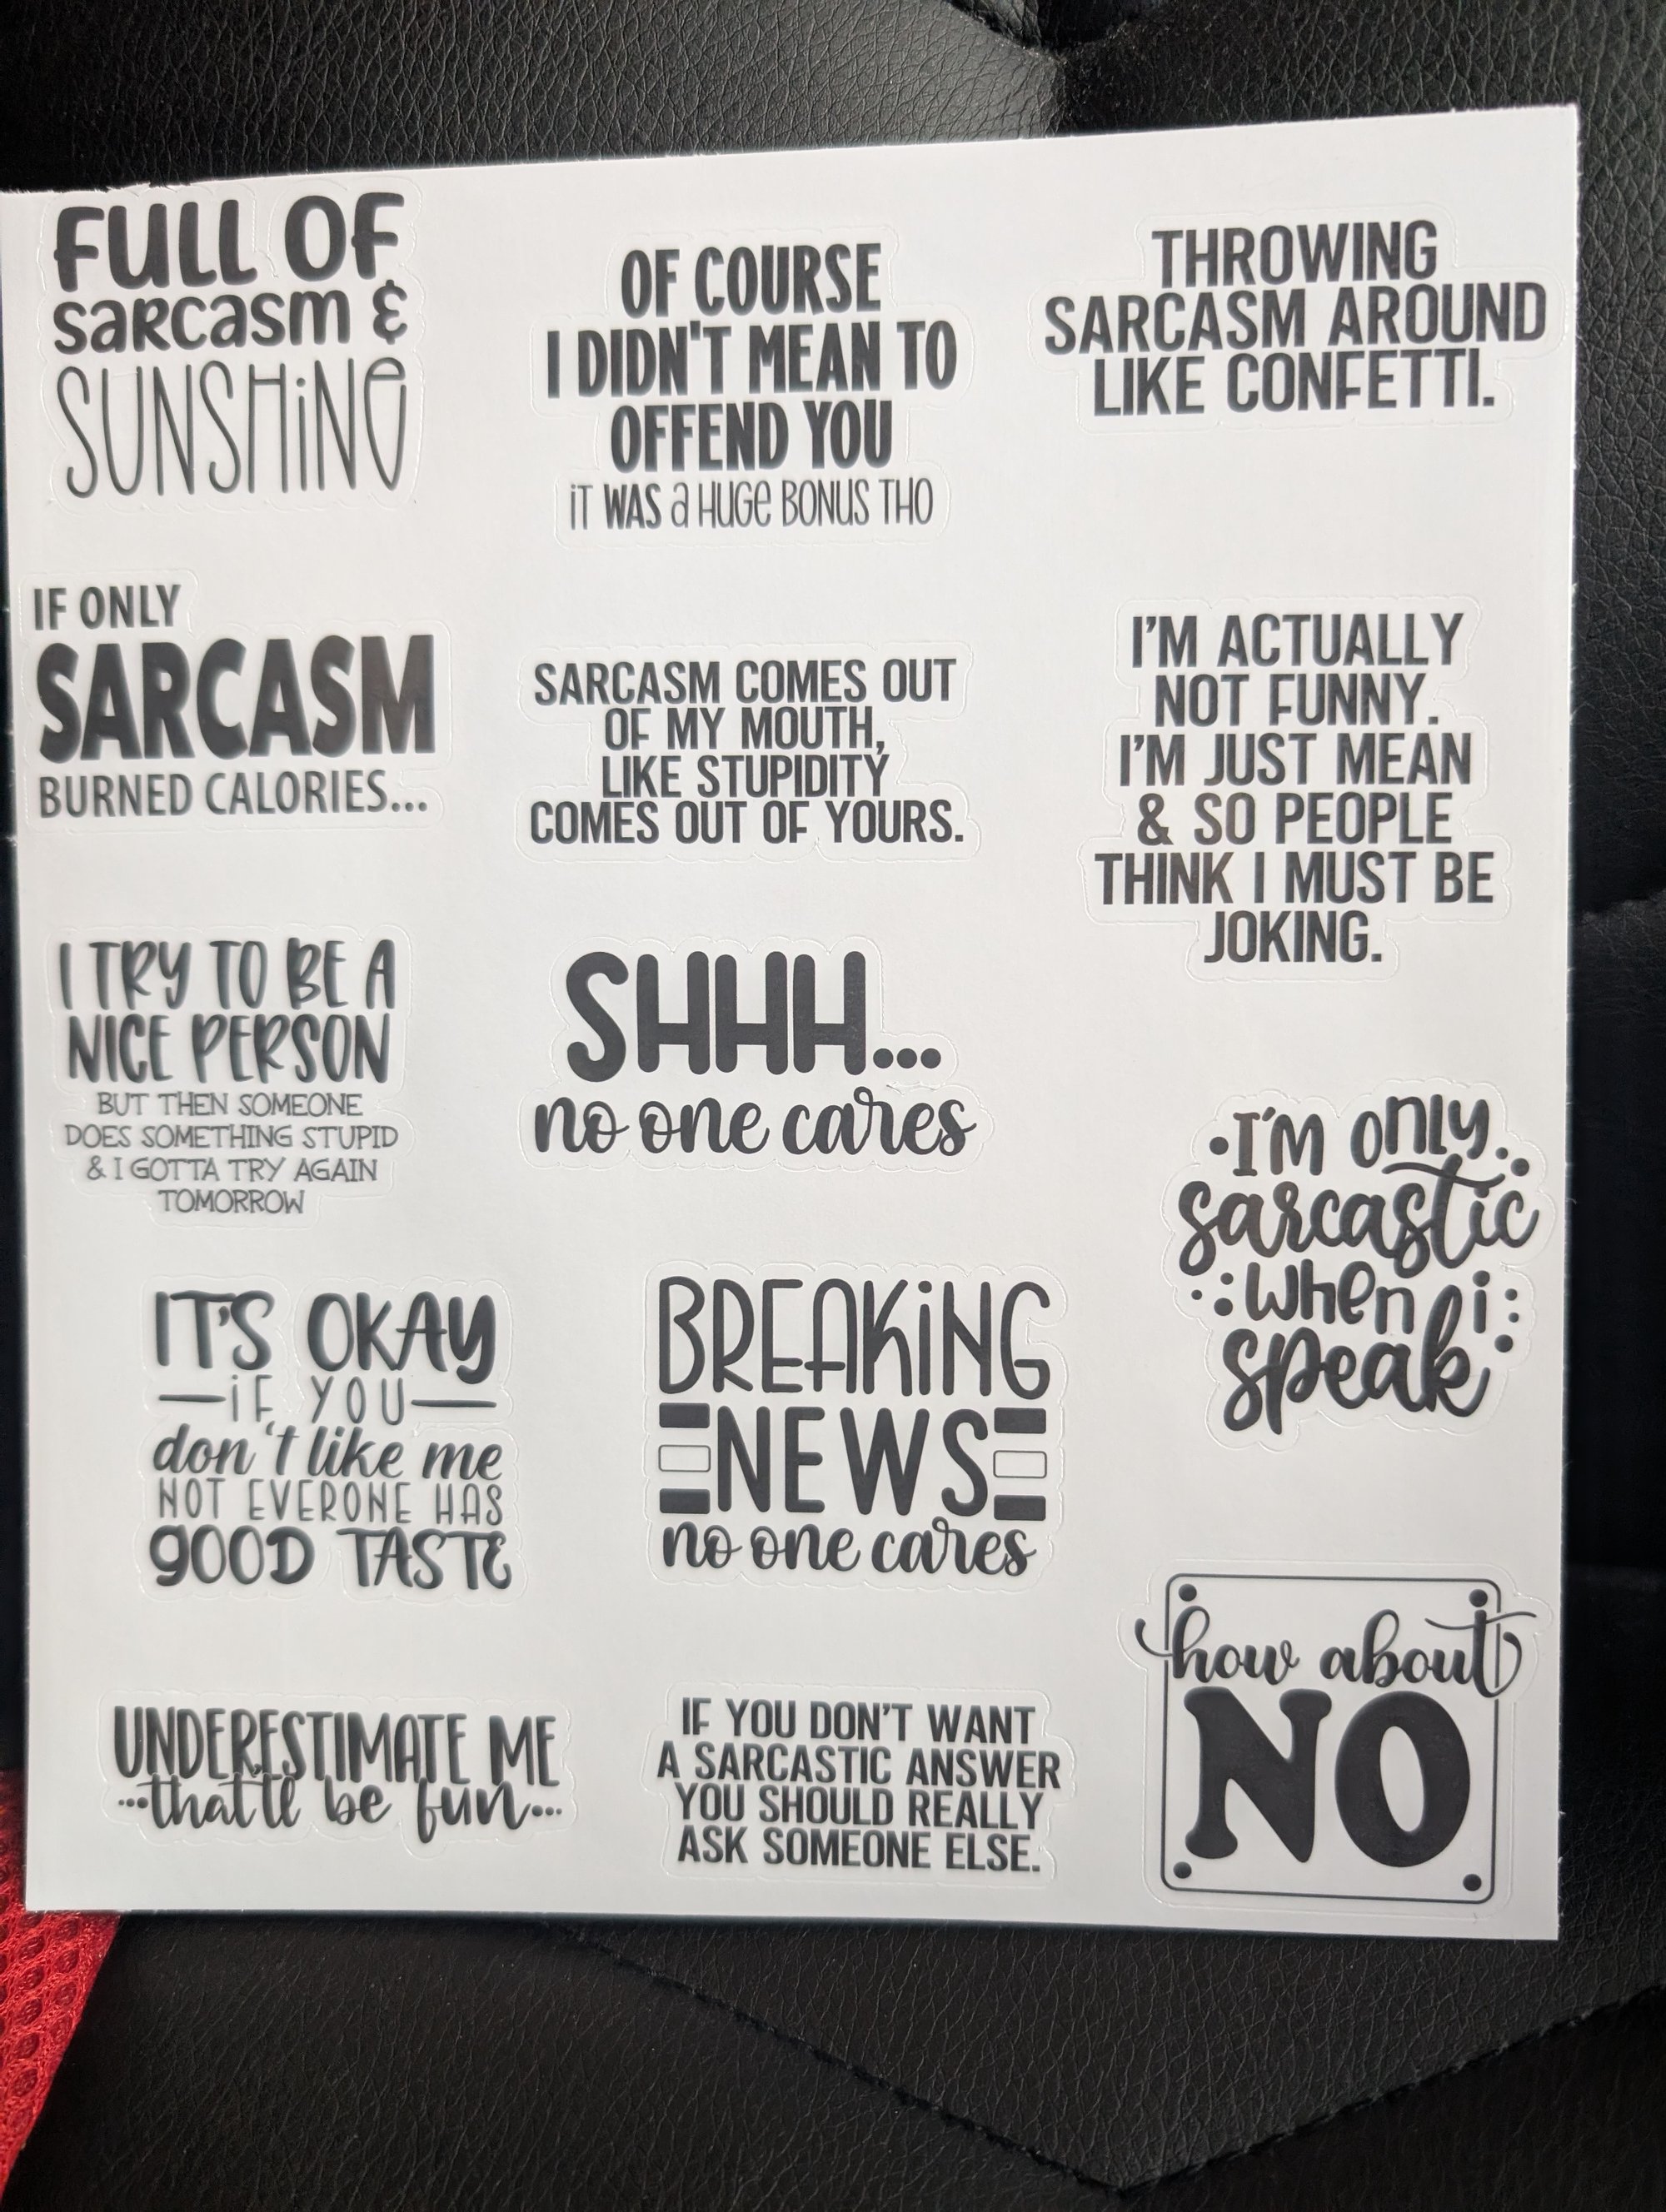 FULL OF
sarcasm &
SUNSHiNe
OF COURSE
I DIDN'T MEAN TO
OFFEND YOU
iT WAS a HUGe BONUS THO
THROWING
SARCASM AROUND
LIKE CONFETTI.
IF ONLY
SARCASM
BURNED CALORIES...
SARCASM COMES OUT
OF MY MOUTH,
LIKE STUPIDITY
COMES OUT OF YOURS.
I'M ACTUALLY
NOT FUNNY.
I'M JUST MEAN
& SO PEOPLE
THINK I MUST BE
JOKING.
I TRY TO BE A
NICE PERSON
BUT THEN SOMEONE
DOES SOMETHING STUPID
& I GOTTA TRY AGAIN
TOMORROW
SHHH...
no one cares
I'M only
sarcastic
when i
speak
IT'S OKAY
iF YOU
don't like me
NOT EVERONE HAS
gOOD TASTE
BREAKiNG
NEWS
no one cares
how about
NO
UNDERESTIMATE ME
...that'll be fun...
IF YOU DON'T WANT
A SARCASTIC ANSWER
YOU SHOULD REALLY
ASK SOMEONE ELSE.